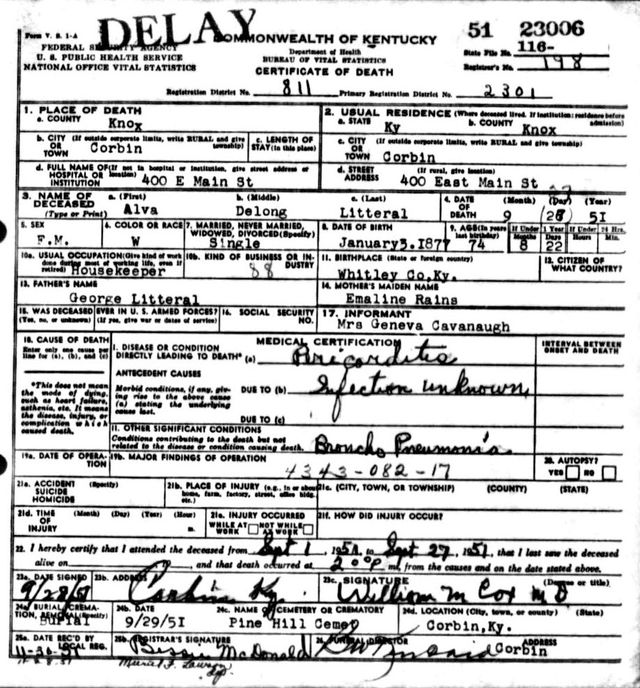 DELAY
Form V. S. 1-A
COMMONWEALTH OF KENTUCKY
51 23006
FEDERAL SECURITY AGENCY
Department of Health
State File No. 116-
U. S. PUBLIC HEALTH SERVICE
BUREAU OF VITAL STATISTICS
Registrar's No. 198
NATIONAL OFFICE VITAL STATISTICS
CERTIFICATE OF DEATH
Registration District No. 811 Primary Registration District No. 2301
1. PLACE OF DEATH
2. USUAL RESIDENCE (Where deceased lived. If institution: residence before admission)
a. COUNTY Knox
a. STATE Ky b. COUNTY Knox
b. CITY (If outside corporate limits, write RURAL and give township) OR TOWN Corbin
c. LENGTH OF STAY (in this place)
c. CITY (If outside corporate limits, write RURAL and give township) OR TOWN Corbin
d. FULL NAME OF (If not in hospital or institution, give street address or location) HOSPITAL OR INSTITUTION 400 E Main St
d. STREET ADDRESS (If rural, give location) 400 East Main St
3. NAME OF DECEASED (Type or Print)
a. (First) Alva
b. (Middle) Delong
c. (Last) Litteral
4. DATE OF DEATH (Month) (Day) (Year) 9 28 51
27
5. SEX F.M.
6. COLOR OR RACE W
7. MARRIED, NEVER MARRIED, WIDOWED, DIVORCED (Specify) Single
8. DATE OF BIRTH January5.1877
9. AGE (In years last birthday) 74
If Under 1 Year Months 8 Days 22
If Under 24 Hrs.
10a. USUAL OCCUPATION (Give kind of work done during most of working life, even if retired) Housekeeper
10b. KIND OF BUSINESS OR INDUSTRY 88
11. BIRTHPLACE (State or foreign country) Whitley Co,Ky.
12. CITIZEN OF WHAT COUNTRY?
13. FATHER'S NAME George Litteral
14. MOTHER'S MAIDEN NAME Emaline Rains
15. WAS DECEASED EVER IN U. S. ARMED FORCES? (Yes, no, or unknown) (If yes, give war or dates of service)
16. SOCIAL SECURITY NO.
17. INFORMANT Mrs Geneva Cavanaugh
18. CAUSE OF DEATH
Enter only one cause per line for (a), (b), and (c)
MEDICAL CERTIFICATION
INTERVAL BETWEEN ONSET AND DEATH
I. DISEASE OR CONDITION DIRECTLY LEADING TO DEATH* (a) Pricorditis
*This does not mean the mode of dying, such as heart failure, asthenia, etc. It means the disease, injury, or complication which caused death.
ANTECEDENT CAUSES
Morbid conditions, if any, giving rise to the above cause (a) stating the underlying cause last.
DUE TO (b) Infection unknown
DUE TO (c)
II. OTHER SIGNIFICANT CONDITIONS
Conditions contributing to the death but not related to the disease or condition causing death.
Broncho Pneumonia
19a. DATE OF OPERATION
19b. MAJOR FINDINGS OF OPERATION
4343-082-17
20. AUTOPSY? YES NO
21a. ACCIDENT SUICIDE HOMICIDE (Specify)
21b. PLACE OF INJURY (e.g., in or about home, farm, factory, street, office bldg. etc.)
21c. (CITY, TOWN, OR TOWNSHIP) (COUNTY) (STATE)
21d. TIME OF INJURY (Month) (Day) (Year) (Hour) m.
21e. INJURY OCCURRED WHILE AT WORK NOT WHILE AT WORK
21f. HOW DID INJURY OCCUR?
22. I hereby certify that I attended the deceased from Sept 1, 1951, to Sept 27, 1951, that I last saw the deceased
alive on , and that death occurred at 200P m., from the causes and on the date stated above.
23a. DATE SIGNED 9/28/51
23b. ADDRESS Corbin Ky.
23c. SIGNATURE (Degree or title) William M Cox MD
24a. BURIAL, CREMATION, REMOVAL (Specify) Burial
24b. DATE 9/29/51
24c. NAME OF CEMETERY OR CREMATORY Pine Hill Cemet
24d. LOCATION (City, town, or county) (State) Corbin,Ky.
25a. DATE REC'D BY LOCAL REG. 11-30-51
25b. REGISTRAR'S SIGNATURE Bessie McDonald
26. FUNERAL DIRECTOR
ADDRESS Corbin